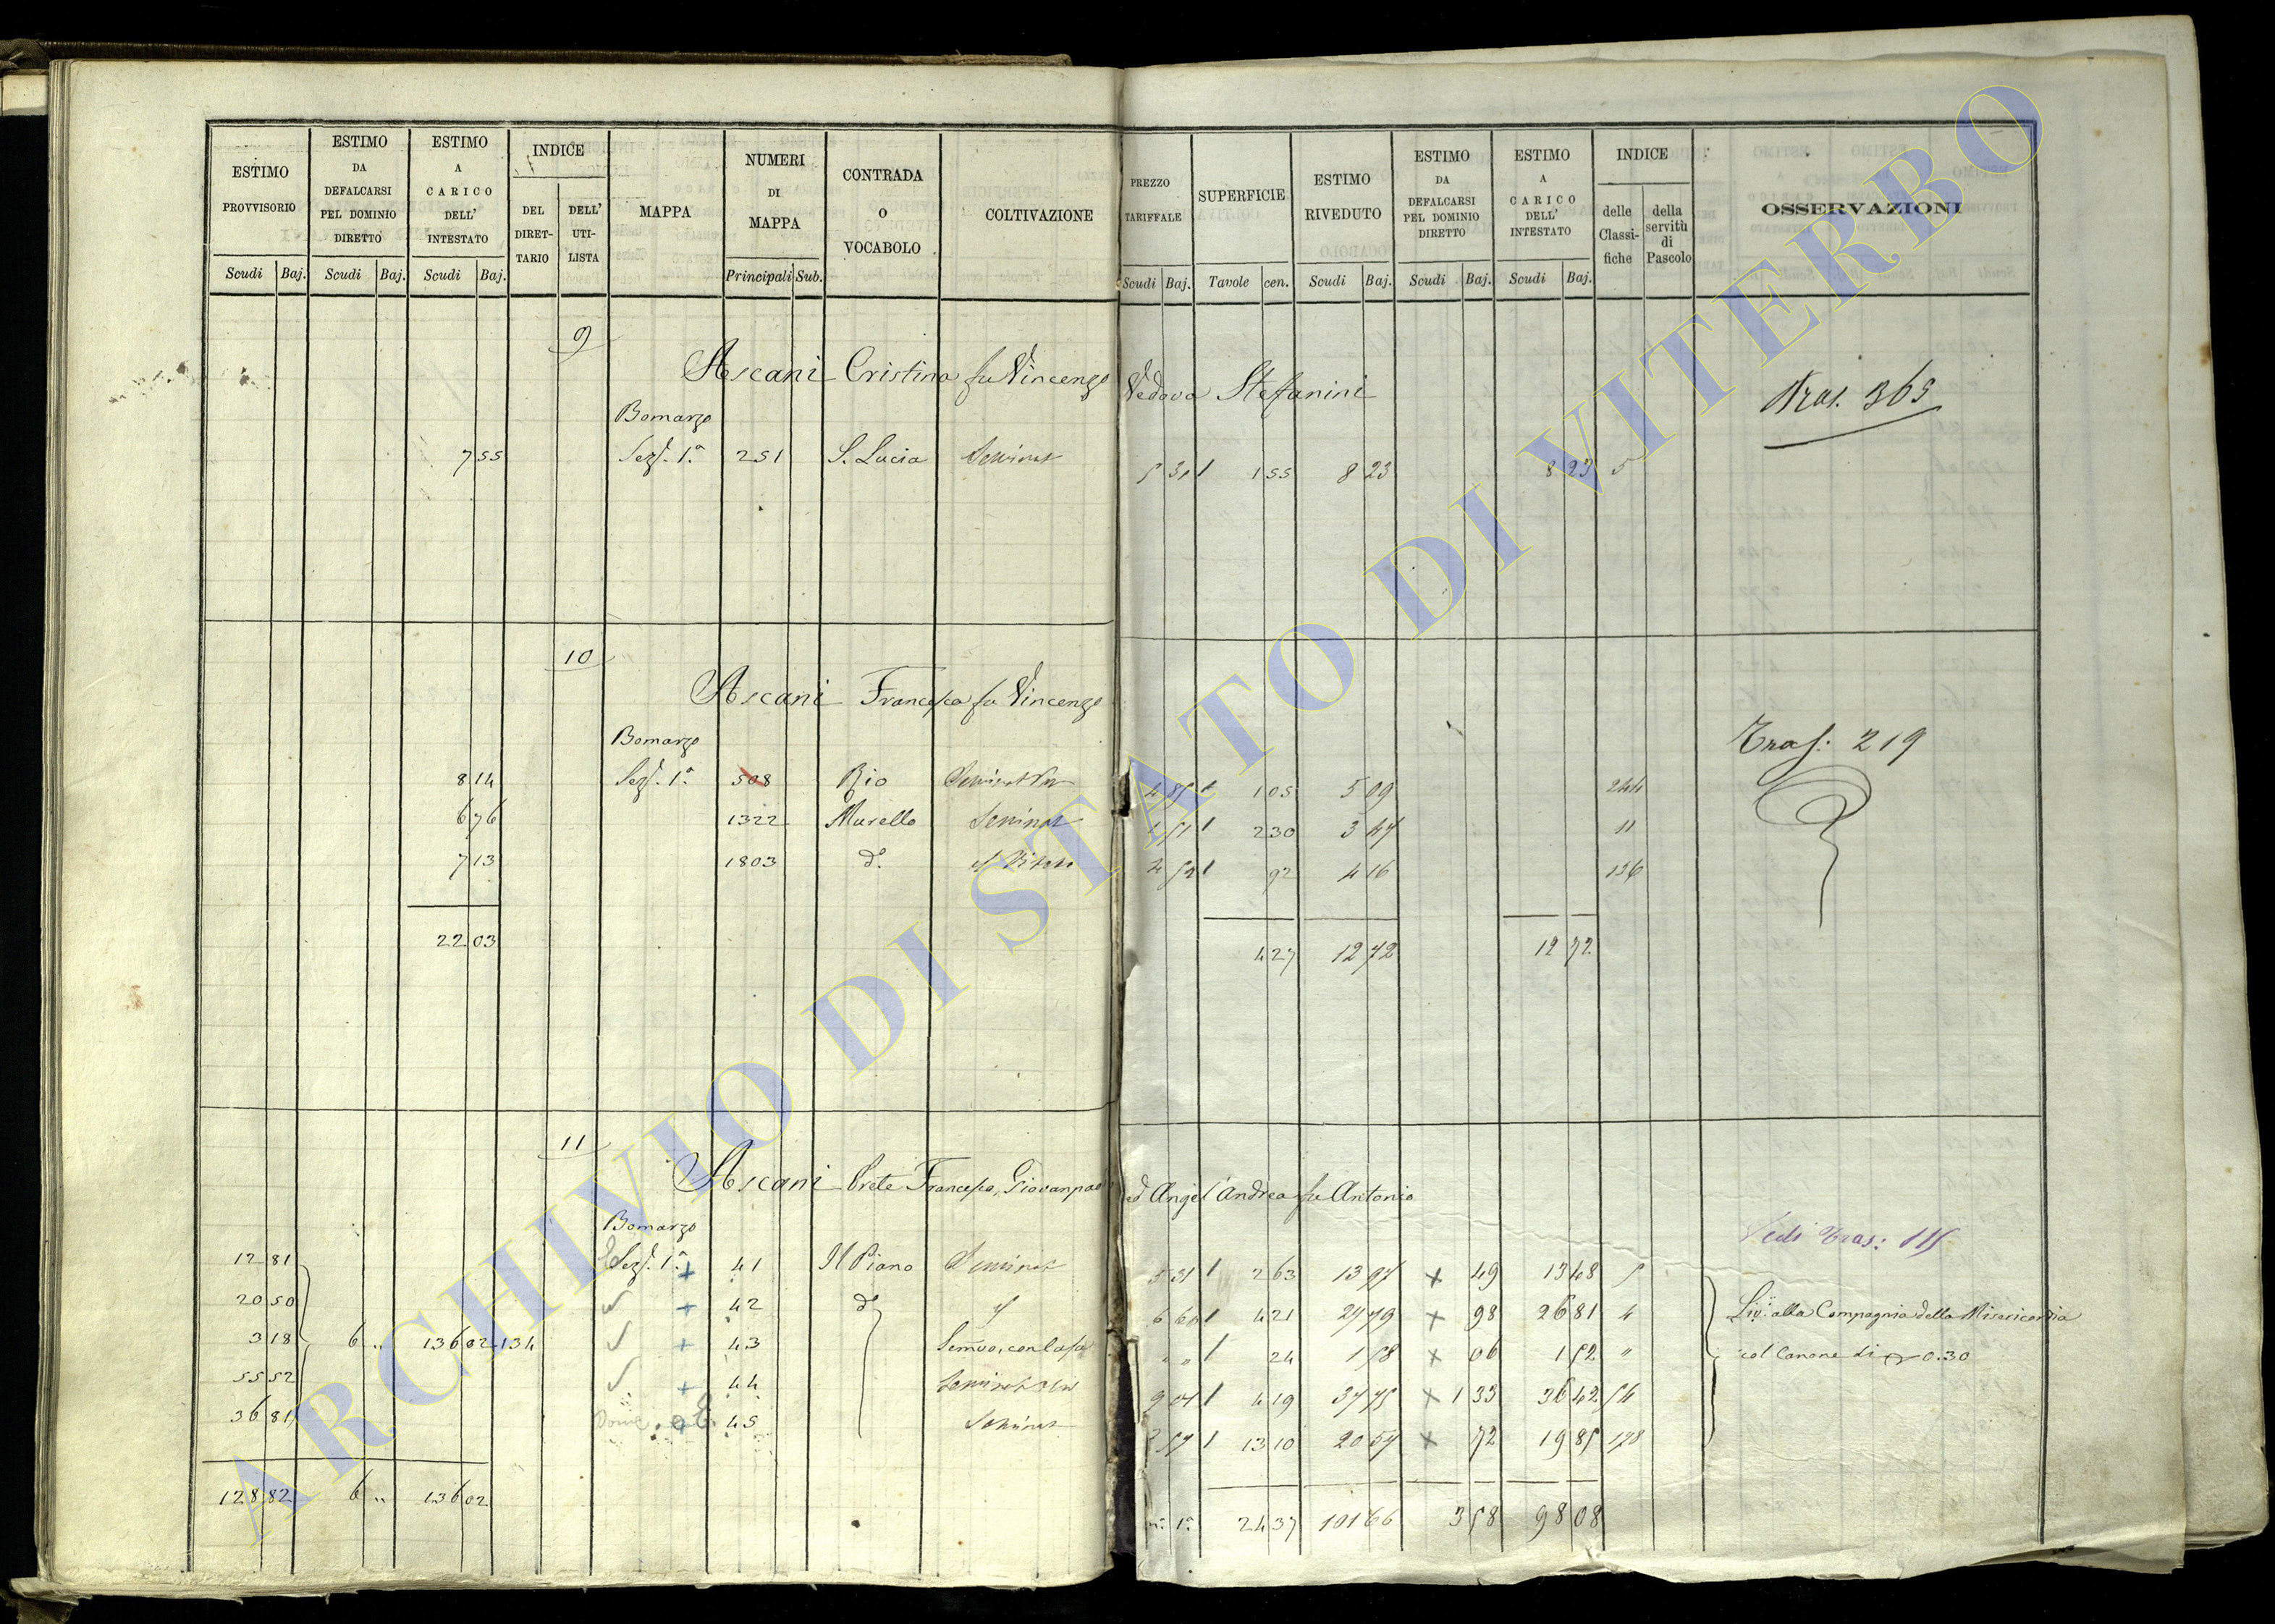 ESTIMO PROVVISORIO Scudi Baj.
ESTIMO DA DEFALCARSI PEL DOMINIO DIRETTO Scudi Baj.
ESTIMO A CARICO DELL' INTESTATO Scudi Baj.
INDICE DEL DIRETTARIO DELL' UTILISTA
MAPPA
NUMERI DI MAPPA Principali Sub.
CONTRADA O VOCABOLO
COLTIVAZIONE
PREZZO TARIFFALE Scudi Baj.
SUPERFICIE Tavole cen.
ESTIMO RIVEDUTO Scudi Baj.
ESTIMO DA DEFALCARSI PEL DOMINIO DIRETTO Scudi Baj.
ESTIMO A CARICO DELL' INTESTATO Scudi Baj.
INDICE delle Classifiche della servitù di Pascolo
OSSERVAZIONI
9
Ascani Cristina fu Vincenzo Vedova Stefanini
Tras. 363
Bomarzo
7 55 Sez. 1.a 251 S. Lucia Seminat 5 31 1 55 8 23 8 23 5
10
Ascani Francesca fu Vincenzo
Bomarzo
Tras: 219
8 14 Sez. 1.a 508 Rio 4 85 1 05 5 09 244
6 76 1322 Murello Seminat 1 51 2 30 3 47 11
7 13 1803 d.o Vitato 4 52 92 4 16 136
22 03 4 27 12 72 12 72
11
Ascani Prete Francesco, Giovanpaolo ed Angel'Andrea fu Antonio
Bomarzo
Vedi Tras: 115
12 81 Sez. 1.a 41 Il Piano Seminat 5 31 2 63 13 97 49 13 48 5
20 50 42 d.o 6 60 4 21 27 79 98 26 81 4 Liv. alla Compagnia della Misericordia
3 18 6 „ 136 02 134 43 „ „ 24 1 58 06 1 52 „ col Canone di 0.30
55 52 44 9 01 4 19 37 75 1 33 36 42 54
36 81 45 Seminat 1 57 13 10 20 57 72 19 85 178
128 82 6 „ 136 02 24 37 101 66 3 58 98 08
ARCHIVIO DI STATO DI VITERBO